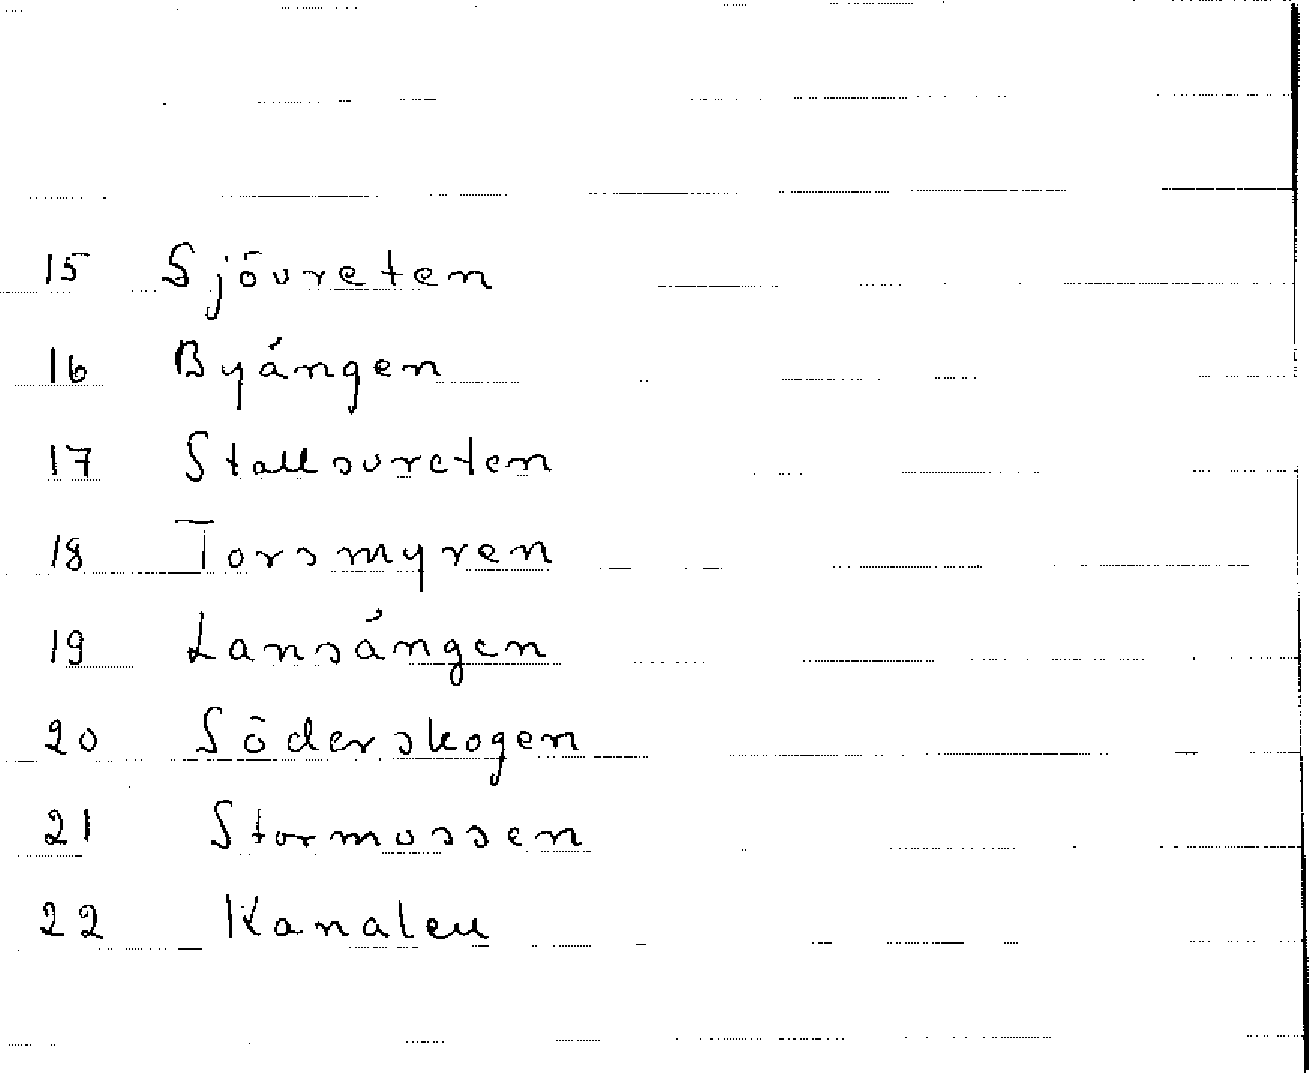 15 Sjövreten
16 Byängen
17 Stallsvreten
18 Torsmyren
19 Lansängen
20 Söderskogen
21 Stormossen
22 Kanalen